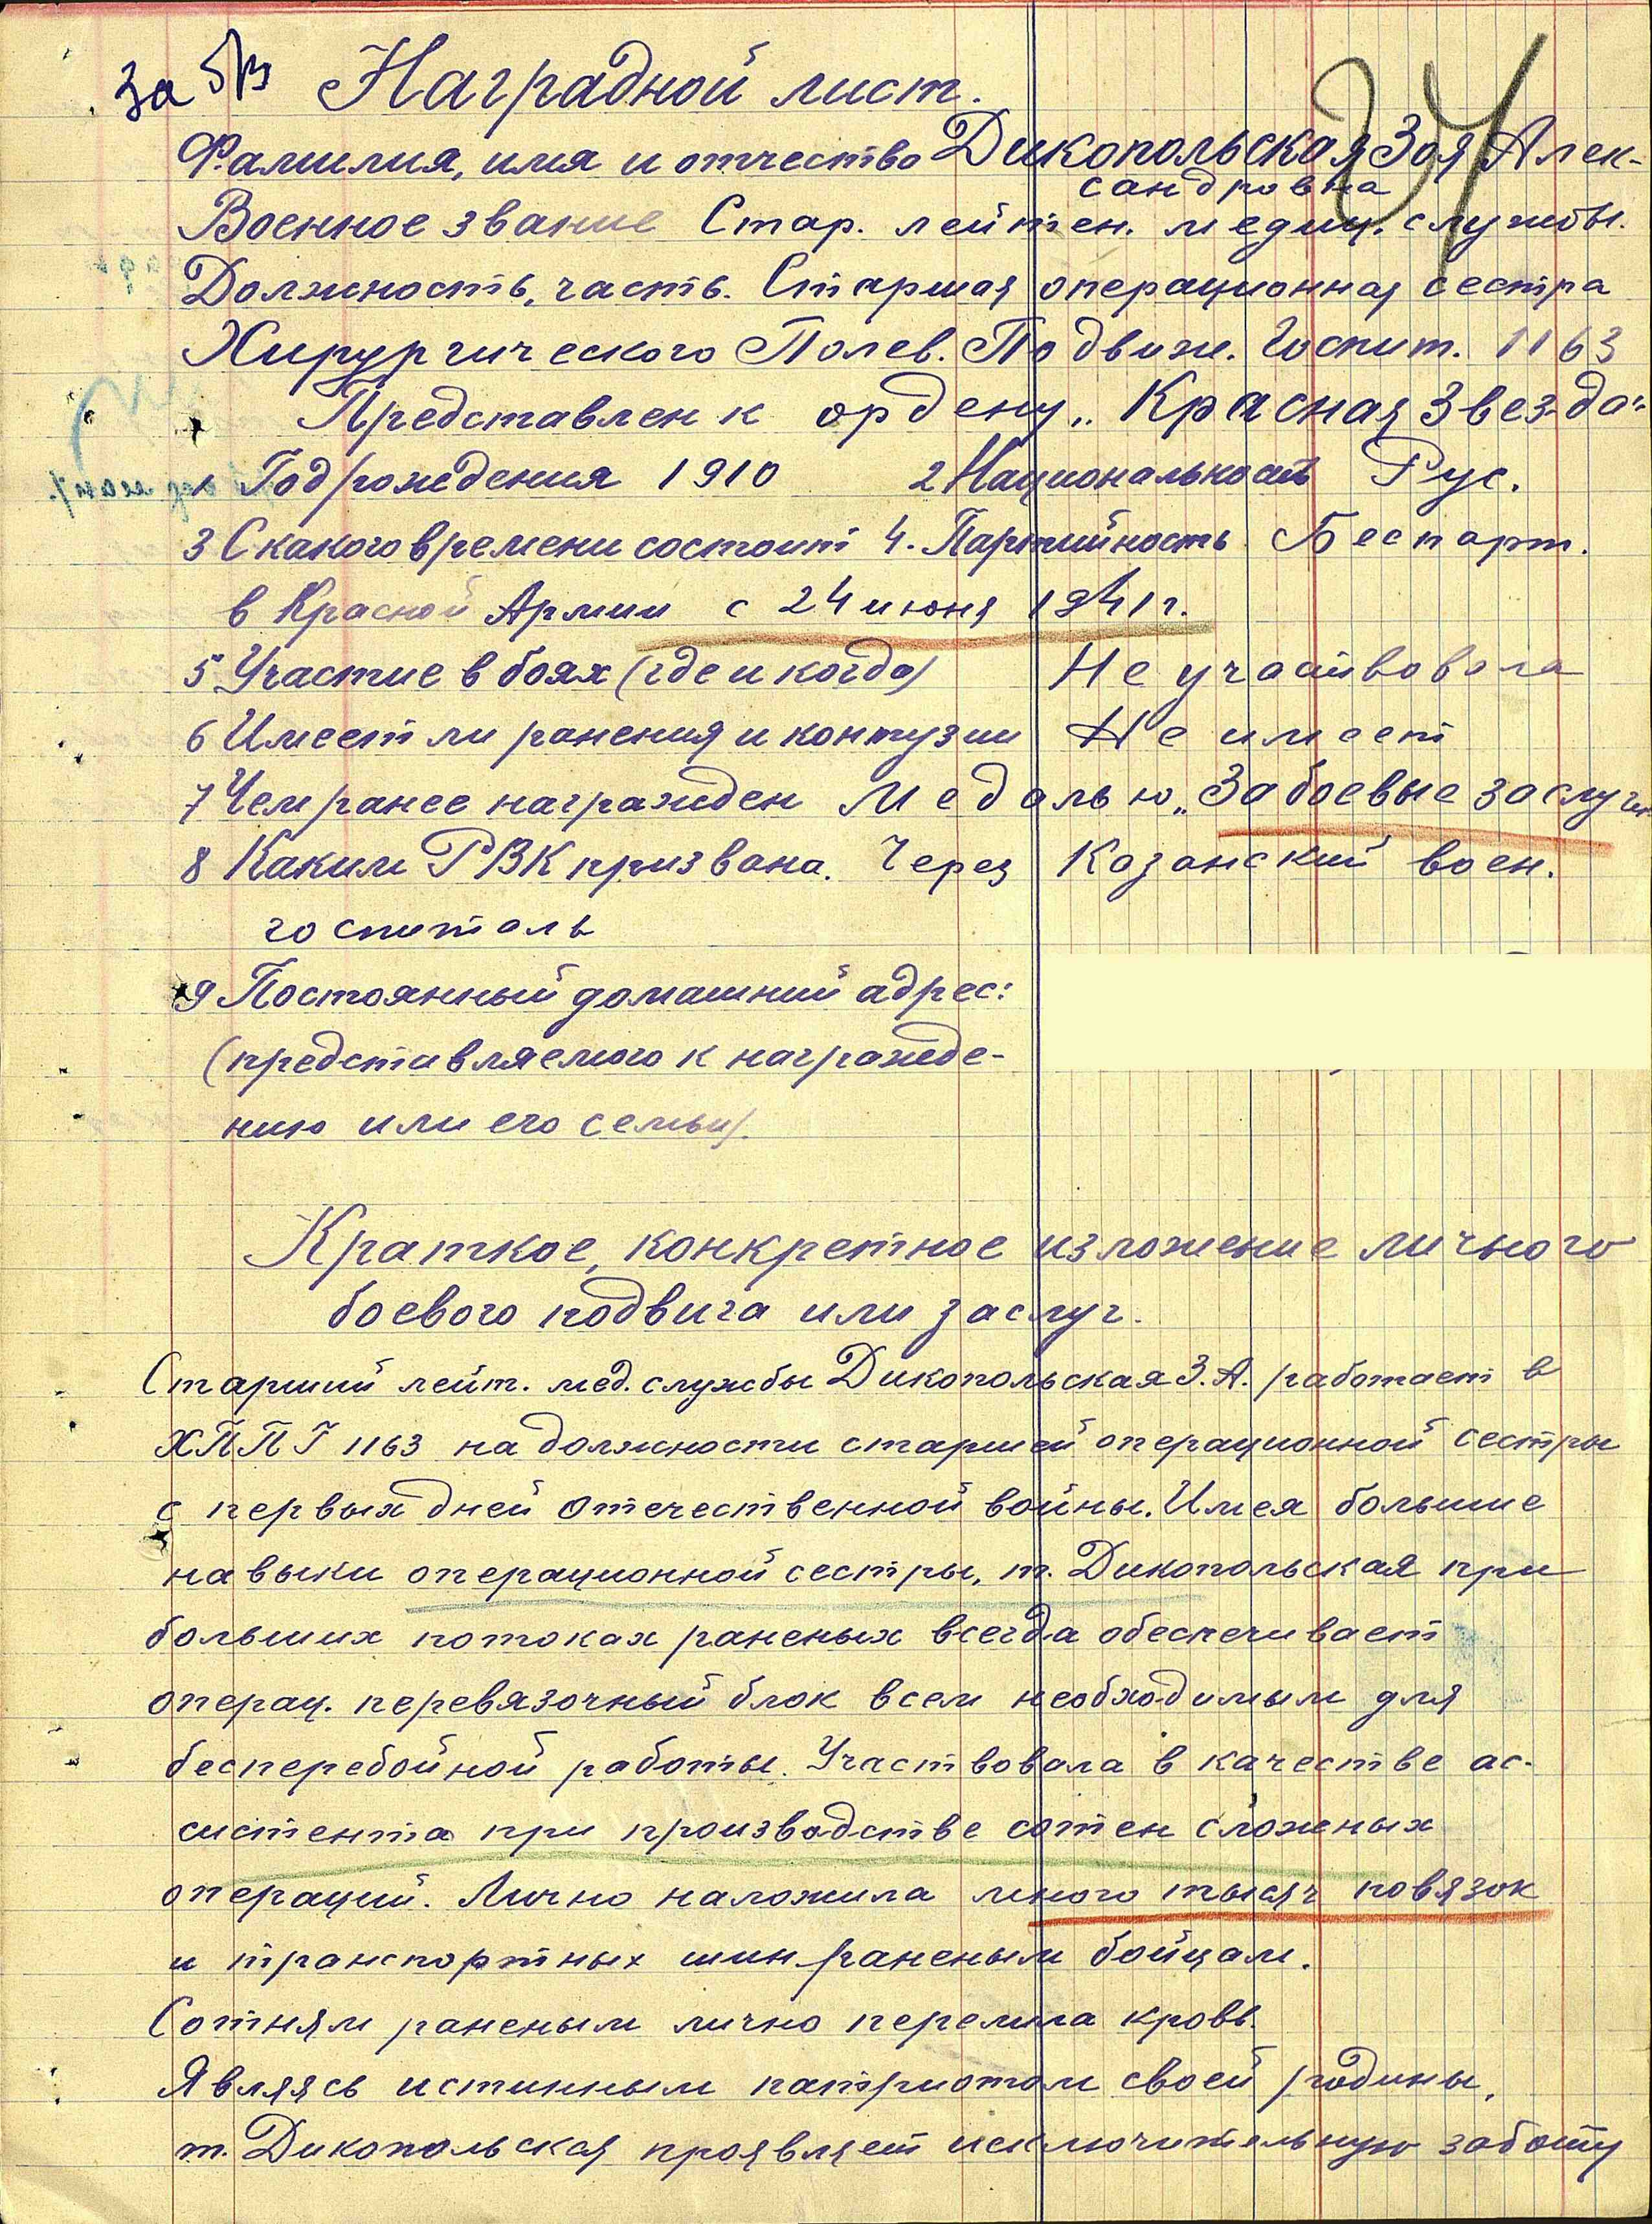 за Наградной лист.
Фамилия, имя и отчество Дикопольская Зоя Алек-
сандровна
Военное звание Стар. лейтен. медиц. службы.
Должность, часть. Старшая операционная сестра
Хирургического Полев. Подвиж. Госпит. 1163
Представлен к ордену „Красная Звезда"
1 Год рождения 1910 2 Национальность Рус.
3 С какого времени состоит 4. Партийность Беспарт.
в Красной Армии с 24 июня 1941 г.
5 Участие в боях (где и когда) Не участвовала
6 Имеет ли ранения и контузии Не имеет
7 Чем ранее награжден Медалью „За боевые заслуги
8 Каким РВК призвана. Через Казанский воен.
госпиталь
9 Постоянный домашний адрес:
(представляемого к награжде-
нию или его семьи).
Краткое, конкретное изложение личного
боевого подвига или заслуг.
Старший лейт. мед. службы Дикопольская З.А. работает в
ХППГ 1163 на должности старшей операционной сестры
с первых дней Отечественной войны. Имея большие
навыки операционной сестры, т. Дикопольская при
больших потоках раненых всегда обеспечивает
операц. перевязочный блок всем необходимым для
бесперебойной работы. Участвовала в качестве ас-
систента при производстве сотен сложеных
операций. Лично наложила много тысяч повязок
и транспортных шин раненым бойцам.
Сотням раненым лично перелила кровь.
Являясь истинным патриотом своей родины,
т. Дикопольская проявляет исключительную заботу